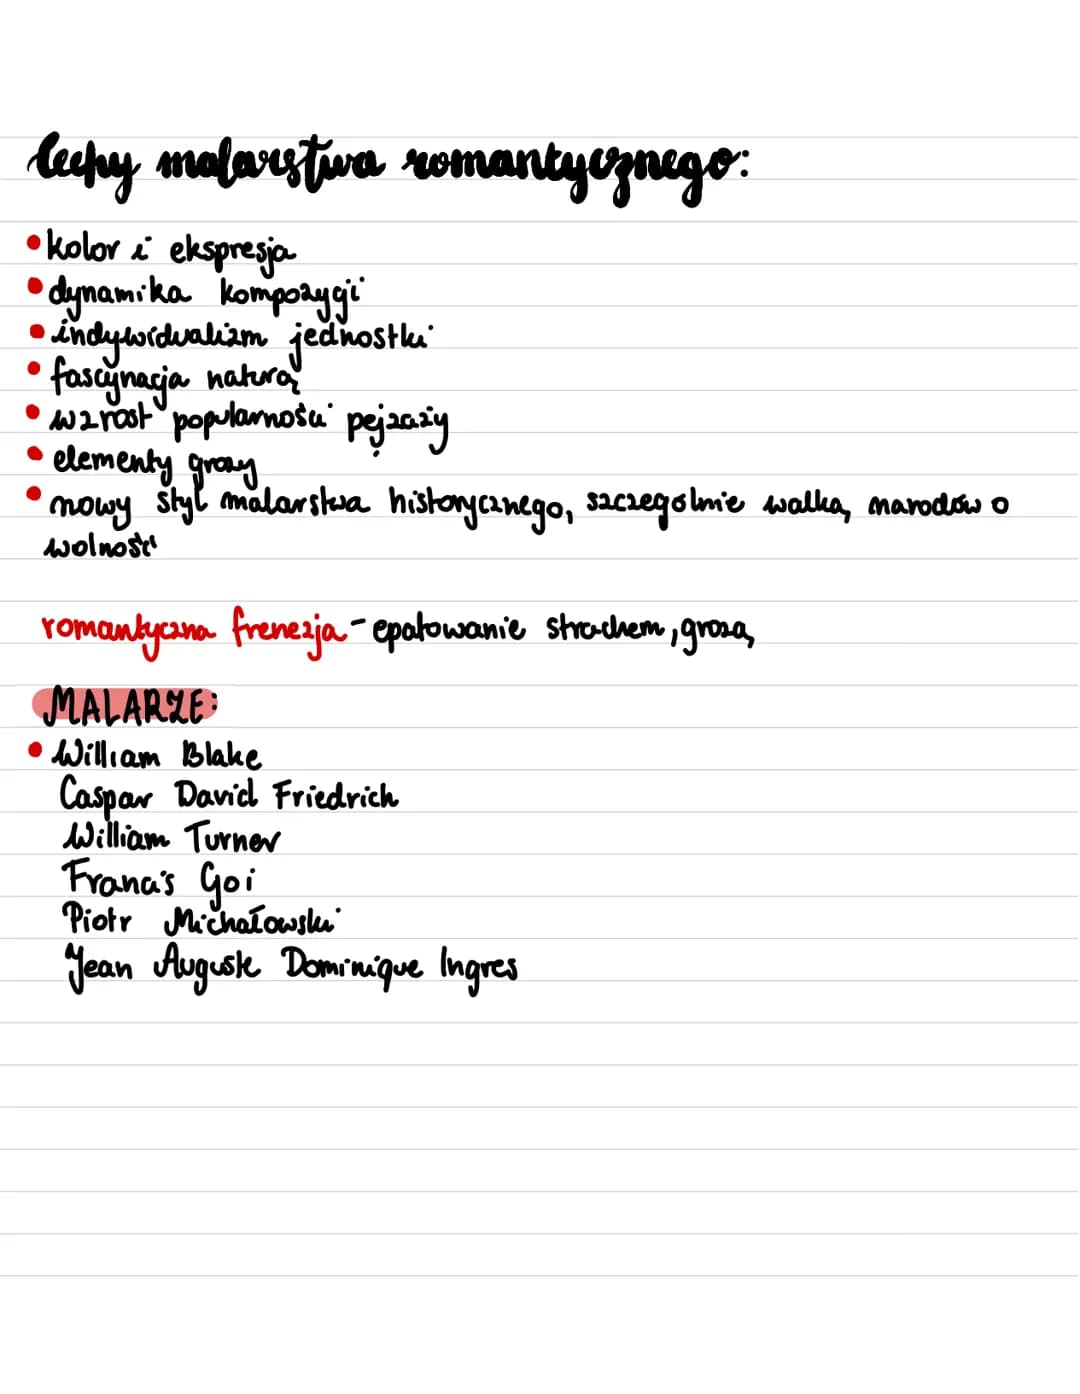 Cechy malarstwa romantycznego:
• kolor i ekspresja
• dynamika kompozycji
• indywidualizm jednostki
• fascynacja naturą
• wzrost popularności pejzaży
• elementy grozy
• nowy styl malarstwa historycznego, szczególnie walka narodów o
wolność
romantyczna frenezja - epatowanie strachem, grozą
MALARZE:
• William Blake
Caspar David Friedrich
William Turner
Francis Goi
Piotr Michałowski
Jean Auguste Dominique Ingres